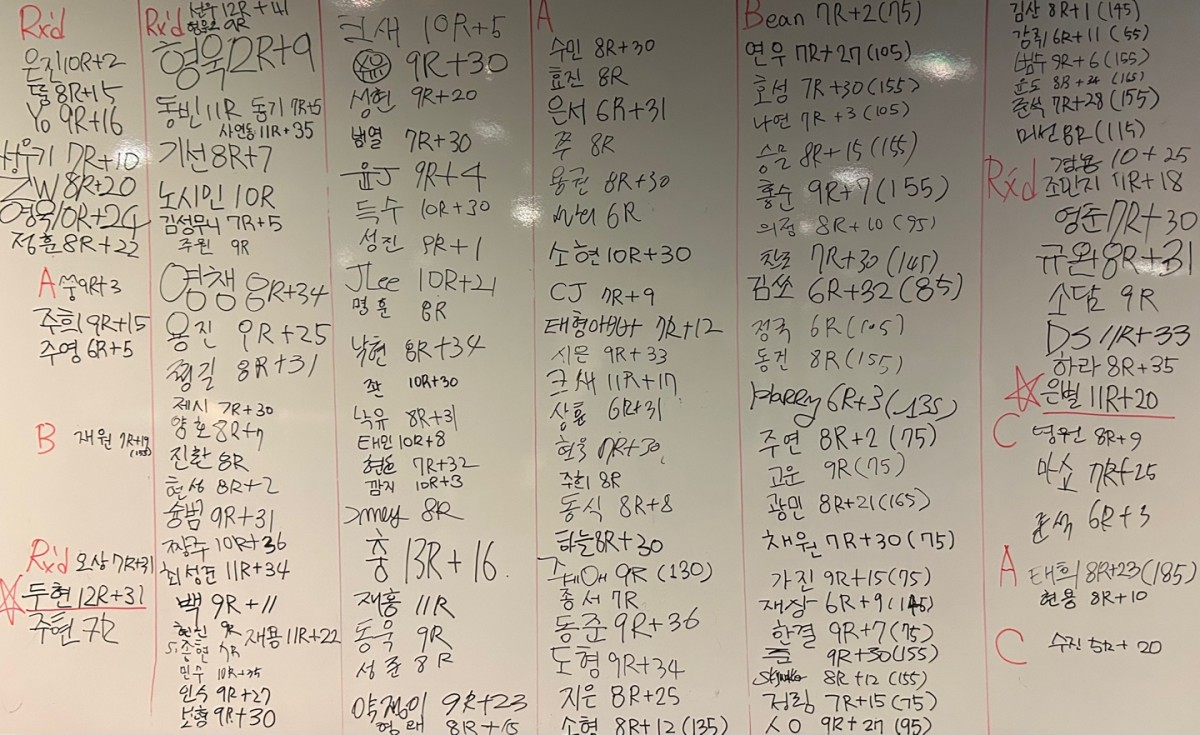 Rx'd
은진 10R+2
돌 8R+15
Yo 9R+16
성우기 7R+10
ZW 8R+20
영욱 10R+24
정훈 8R+22
A 쑹 9R+3
주희 9R+15
주영 6R+5
B 재원 7R+19
Rx'd 오상 7R+31
두현 12R+31
주현 7R
Rx'd 선우 12R+41
9R
형욱 12R+9
동빈 11R 동기 7R+5
사연동 11R+35
기선 8R+7
노시민 10R
김성무니 7R+5
주원 9R
영챙 8R+34
용진 9R+25
찡길 8R+31
제시 7R+30
양호 8R+7
진환 8R
현성 8R+2
슝범 9R+31
찡주 10R+36
최성준 11R+34
백 9R+11
현진 9R
재용 11R+22
민수 10R+35
인수 9R+27
보형 9R+30
크새 10R+5
유 9R+30
성헌 9R+20
병열 7R+30
윤J 9R+4
득수 10R+30
성진 9R+1
JLee 10R+21
명훈 8R
낙현 8R+34
쫜 10R+30
낙유 8R+31
태민 10R+8
현준 7R+32
깜지 10R+3
Jmey 8R
충 13R+16
재홍 11R
동욱 9R
성준 8R
약쟁이 9R+23
형래 8R+15
A
수민 8R+30
효진 8R
은서 6R+31
쭈 8R
용권 8R+30
6R
소현 10R+30
CJ 7R+9
태형아버님 7R+12
시은 9R+33
크새 11R+17
상효 6R+31
현욱 7R+30
주희 8R
동식 8R+8
하늘 8R+30
9R (130)
종서 7R
동준 9R+36
도형 9R+34
지은 8R+25
소형 8R+12 (135)
Bean 7R+2 (75)
연우 7R+27 (105)
호성 7R+30 (155)
나연 7R+3 (105)
승믈 8R+15 (155)
홍순 9R+7 (155)
의정 8R+10 (95)
찬호 7R+30 (145)
김쏘 6R+32 (85)
정국 6R (105)
동건 8R (155)
Harry 6R+3 (135)
주연 8R+2 (75)
고운 9R (75)
광민 8R+21 (165)
채원 7R+30 (75)
가진 9R+15 (75)
재상 6R+9 (145)
한결 9R+7 (75)
준 9R+30 (155)
8R+12 (155)
정림 7R+15 (75)
ㅅㅇ 9R+27 (95)
김산 8R+1 (145)
감취 6R+11 (55)
범수 9R+6 (155)
윤도 8R+34 (165)
준석 7R+28 (155)
머선 8R (115)
Rx'd
경용 10+25
조민지 11R+18
영준 7R+30
규완 8R+31
소담 9R
DS 11R+33
하라 8R+35
은별 11R+20
C 영원 8R+9
마쇼 7R+25
준석 6R+3
A 태희 8R+23 (185)
현용 8R+10
C 수진 5R+20